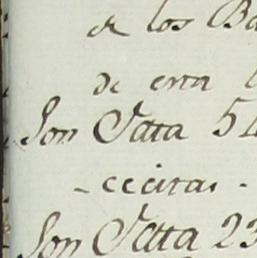 de los Ba
de esta
Son Data 5
-cecitas-
Son Data 23